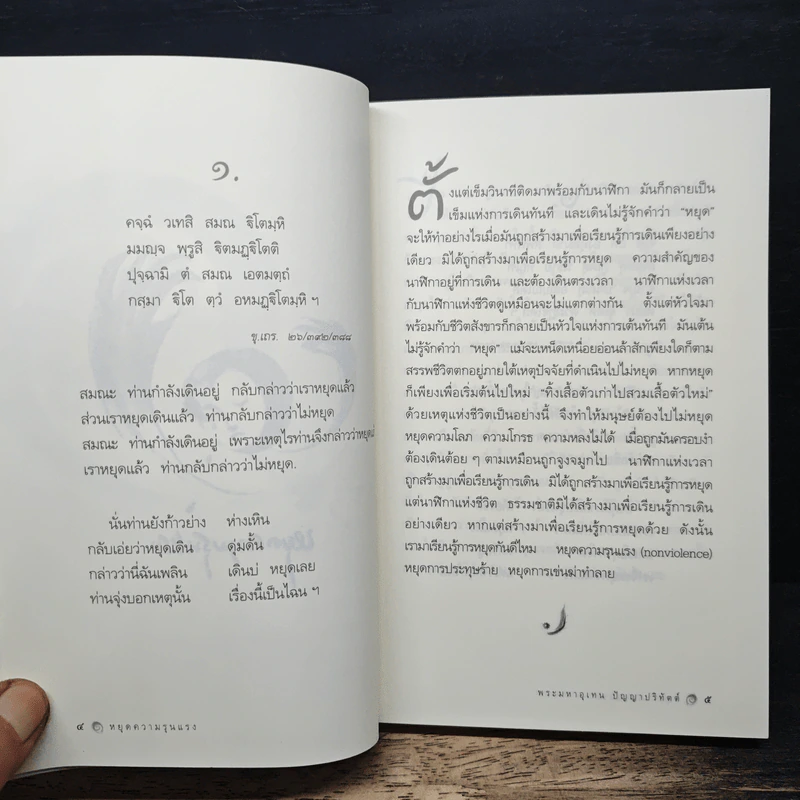 ๑.
คจฺฉํ วเทสิ สมณ ฐิโตมฺหิ
มมญฺจ พฺรูสิ ฐิตมฏฺฐิโตติ
ปุจฺฉามิ ตํ สมณ เอตมตฺถํ
กสฺมา ฐิโต ตฺวํ อหมฏฺฐิโตมฺหิ ฯ
ขุ.เถร. ๒๖/๓๙๒/๓๘๘
สมณะ ท่านกำลังเดินอยู่ กลับกล่าวว่าเราหยุดแล้ว
ส่วนเราหยุดเดินแล้ว ท่านกลับกล่าวว่าไม่หยุด
สมณะ ท่านกำลังเดินอยู่ เพราะเหตุไรท่านจึงกล่าวว่าหยุด
เราหยุดแล้ว ท่านกลับกล่าวว่าไม่หยุด.
นั่นท่านยังก้าวย่าง ห่างเหิน
กลับเอ่ยว่าหยุดเดิน ดุ่มดั้น
กล่าวว่านี่ฉันเพลิน เดินบ่ หยุดเลย
ท่านจุ่งบอกเหตุนั้น เรื่องนี้เป็นไฉน ฯ
๔ หยุดความรุนแรง
ตั้งแต่เข็มวินาทีติดมาพร้อมกับนาฬิกา มันก็กลายเป็น
เข็มแห่งการเดินทันที และเดินไม่รู้จักคำว่า “หยุด”
จะให้ทำอย่างไรเมื่อมันถูกสร้างมาเพื่อเรียนรู้การเดินเพียงอย่าง
เดียว มิได้ถูกสร้างมาเพื่อเรียนรู้การหยุด ความสำคัญของ
นาฬิกาอยู่ที่การเดิน และต้องเดินตรงเวลา นาฬิกาแห่งเวลา
กับนาฬิกาแห่งชีวิตดูเหมือนจะไม่แตกต่างกัน ตั้งแต่หัวใจมา
พร้อมกับชีวิตสังขารก็กลายเป็นหัวใจแห่งการเต้นทันที มันเต้น
ไม่รู้จักคำว่า “หยุด” แม้จะเหน็ดเหนื่อยอ่อนล้าสักเพียงใดก็ตาม
สรรพชีวิตตกอยู่ภายใต้เหตุปัจจัยที่ดำเนินไปไม่หยุด หากหยุด
ก็เพียงเพื่อเริ่มต้นไปใหม่ “ทิ้งเสื้อตัวเก่าไปสวมเสื้อตัวใหม่”
ด้วยเหตุแห่งชีวิตเป็นอย่างนี้ จึงทำให้มนุษย์ต้องไปไม่หยุด
หยุดความโลภ ความโกรธ ความหลงไม่ได้ เมื่อถูกมันครอบงำ
ต้องเดินต้อย ๆ ตามเหมือนถูกจูงจมูกไป นาฬิกาแห่งเวลา
ถูกสร้างมาเพื่อเรียนรู้การเดิน มิได้ถูกสร้างมาเพื่อเรียนรู้การหยุด
แต่นาฬิกาแห่งชีวิต ธรรมชาติมิได้สร้างมาเพื่อเรียนรู้การเดิน
อย่างเดียว หากแต่สร้างมาเพื่อเรียนรู้การหยุดด้วย ดังนั้น
เรามาเรียนรู้การหยุดกันดีไหม หยุดความรุนแรง (nonviolence)
หยุดการประทุษร้าย หยุดการเข่นฆ่าทำลาย
พระมหาอุเทน ปัญญาปริทัตต์ ๕